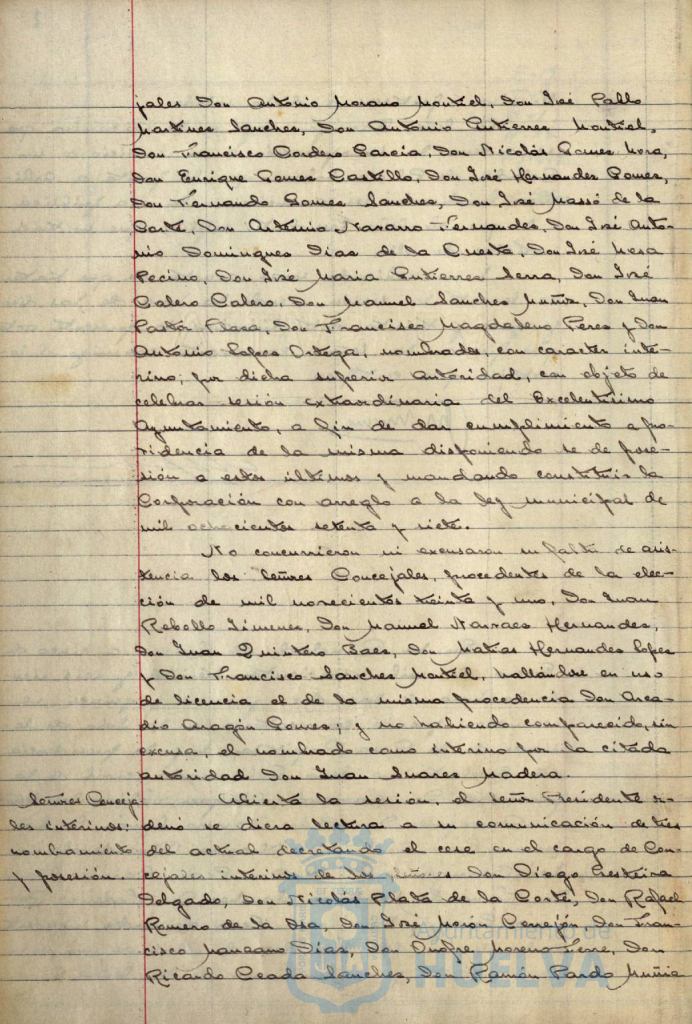 jales Don Antonio Morano Montiel, Don José Pablo
Martines Sanches, Don Antonio Gutierres Montiel,
Don Francisco Cordero Garcia, Don Nicolás Gomes Mora,
Don Enrique Gomes Castillo, Don José Hernandes Gomes,
Don Fernando Gomes Sanches, Don José Massó de la
Corte, Don Antonio Navarro Fernandes, Don José Anto-
nio Domingues Dias de la Cuesta, Don José Mesa
Pecino, Don José Maria Gutierres Serra, Don José
Calero Calero, Don Manuel Sanches Muñiz, Don Juan
Pastor Plaza, Don Francisco Magdaleno Peres y Don
Antonio Lopes Ortega, nombrados, con caracter inte-
rino, por dicha superior autoridad, con objeto de
celebrar sesión extraordinaria del Excelentisimo
Ayuntamiento, a fin de dar cumplimiento a pro-
videncia de la misma disponiendo se de pose-
sión a estos últimos y mandando constituir la
Corporación con arreglo a la ley municipal de
mil ochocientos setenta y siete.
No concurrieron ni excusaron su falta de asis-
tencia los señores Concejales, procedentes de la elec-
ción de mil novecientos treinta y uno, Don Juan
Rebollo Jimenes, Don Manuel Narvaes Hernandes,
Don Juan Quintero Baes, Don Matias Hernandes Lopes
y Don Francisco Sanches Montiel, hallándose en uso
de licencia el de la misma procedencia Don Arca-
dio Aragón Gomes; y no habiendo comparecido, sin
excusa, el nombrado como interino por la citada
autoridad Don Juan Suares Madera.
Señores Conceja-
les interinos:
nombramiento
y posesión.
Abierta la sesión, el señor Presidente or-
denó se diera lectura a su comunicación de tres
del actual decretando el cese en el cargo de Con-
cejales interinos de los señores Don Diego
Delgado, Don Nicolás Plata de la Corte, Don Rafael
Romero de la Osa, Don José Morón Cerrejón, Don Fran-
cisco Manzano Dias, Don Onofre Moreno Ferre, Don
Ricardo Ceada Sanches, Don Ramón Pardo Muñiz
Ayuntamiento de
HUELVA